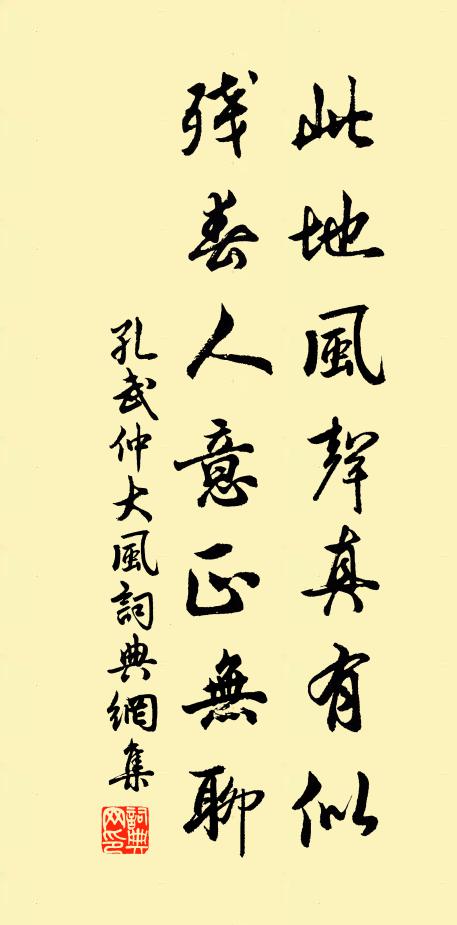 此地風聲真有似
殘春人意正無聊
孔武仲大風詞典網集
詞典網印